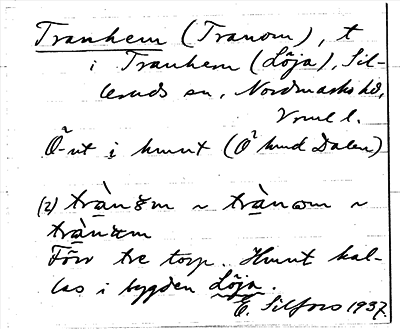 Tranhem (Tranom), t
i Tranhem (Löja), Sil-
leruds sn, Nordmarks hd,
Vrml l.
Ö-ut i hmnt (Ö hmd Dalen)
(2) ~ ~
Förr tre torp. Hmnt kal-
las i bygden Löja.
E. Silfors 1937.